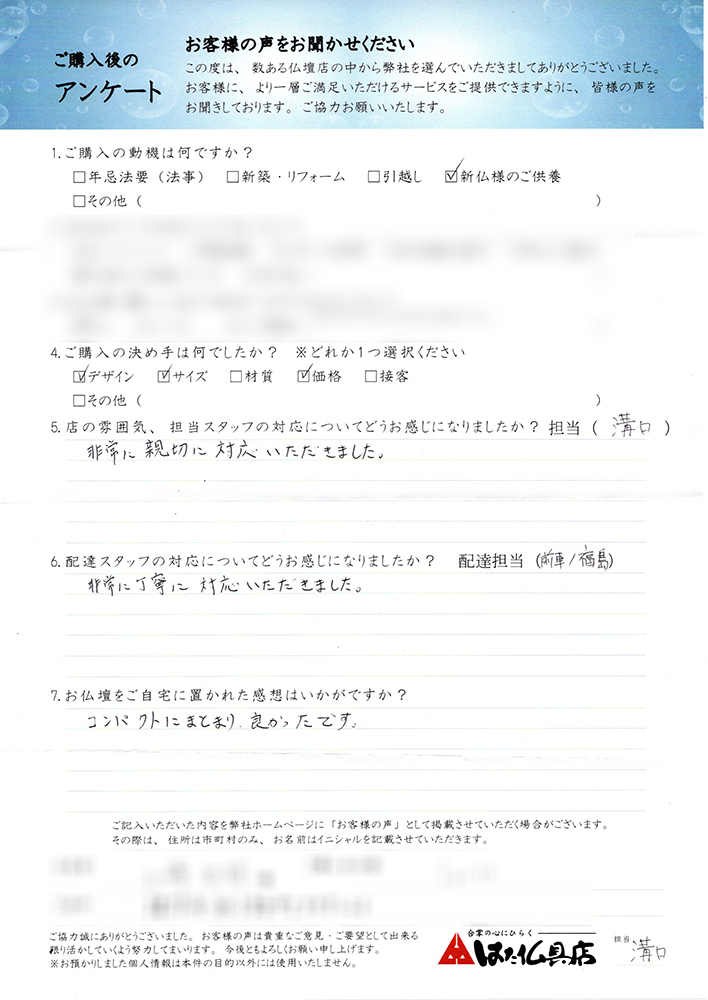 ご購入後の
アンケート
お客様の声をお聞かせください
この度は、数ある仏壇店の中から弊社を選んでいただきましてありがとうございました。
お客様に、より一層ご満足いただけるサービスをご提供できますように、皆様の声を
お聞きしております。ご協力お願いいたします。
1.ご購入の動機は何ですか？
□年忌法要（法事） □新築・リフォーム □引越し ☑新仏様のご供養
□その他（ ）
4.ご購入の決め手は何でしたか？ ※どれか1つ選択ください
☑デザイン ☑サイズ □材質 ☑価格 □接客
□その他（ ）
5.店の雰囲気、担当スタッフの対応についてどうお感じになりましたか？担当（ 溝口 ）
非常に親切に対応いただきました。
6.配達スタッフの対応についてどうお感じになりましたか？ 配達担当（ /福島）
非常に丁寧に対応いただきました。
7.お仏壇をご自宅に置かれた感想はいかがですか？
コンパクトにまとまり、良かったです。
ご記入いただいた内容を弊社ホームページに「お客様の声」として掲載させていただく場合がございます。
その際は、住所は市町村のみ、お名前はイニシャルを記載させていただきます。
ご協力誠にありがとうございました。お客様の声は貴重なご意見・ご要望として出来る
限り活かしていくよう努力してまいります。今後ともよろしくお願い申し上げます。
※お預かりしました個人情報は本件の目的以外には使用いたしません。
合掌の心にひらく
はた仏具店
担当
溝口